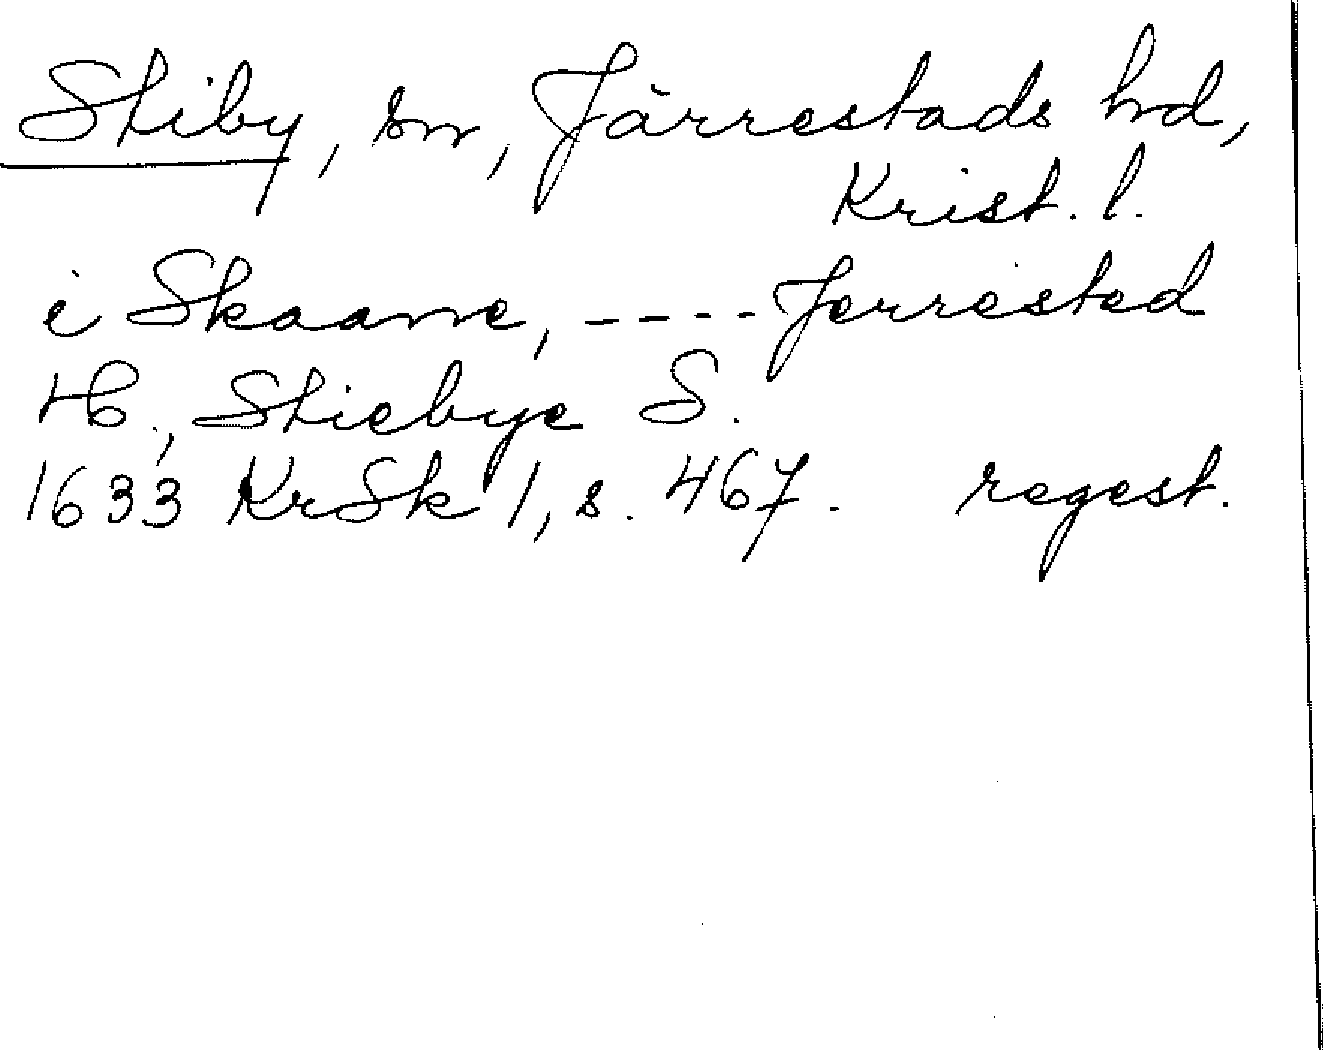 Stiby, sn, Järrestads hd,
Krist. l.
i Skaane, ---- Jerrested
H., Stiebye S.
1633 KrSk 1, s. 467. regest.